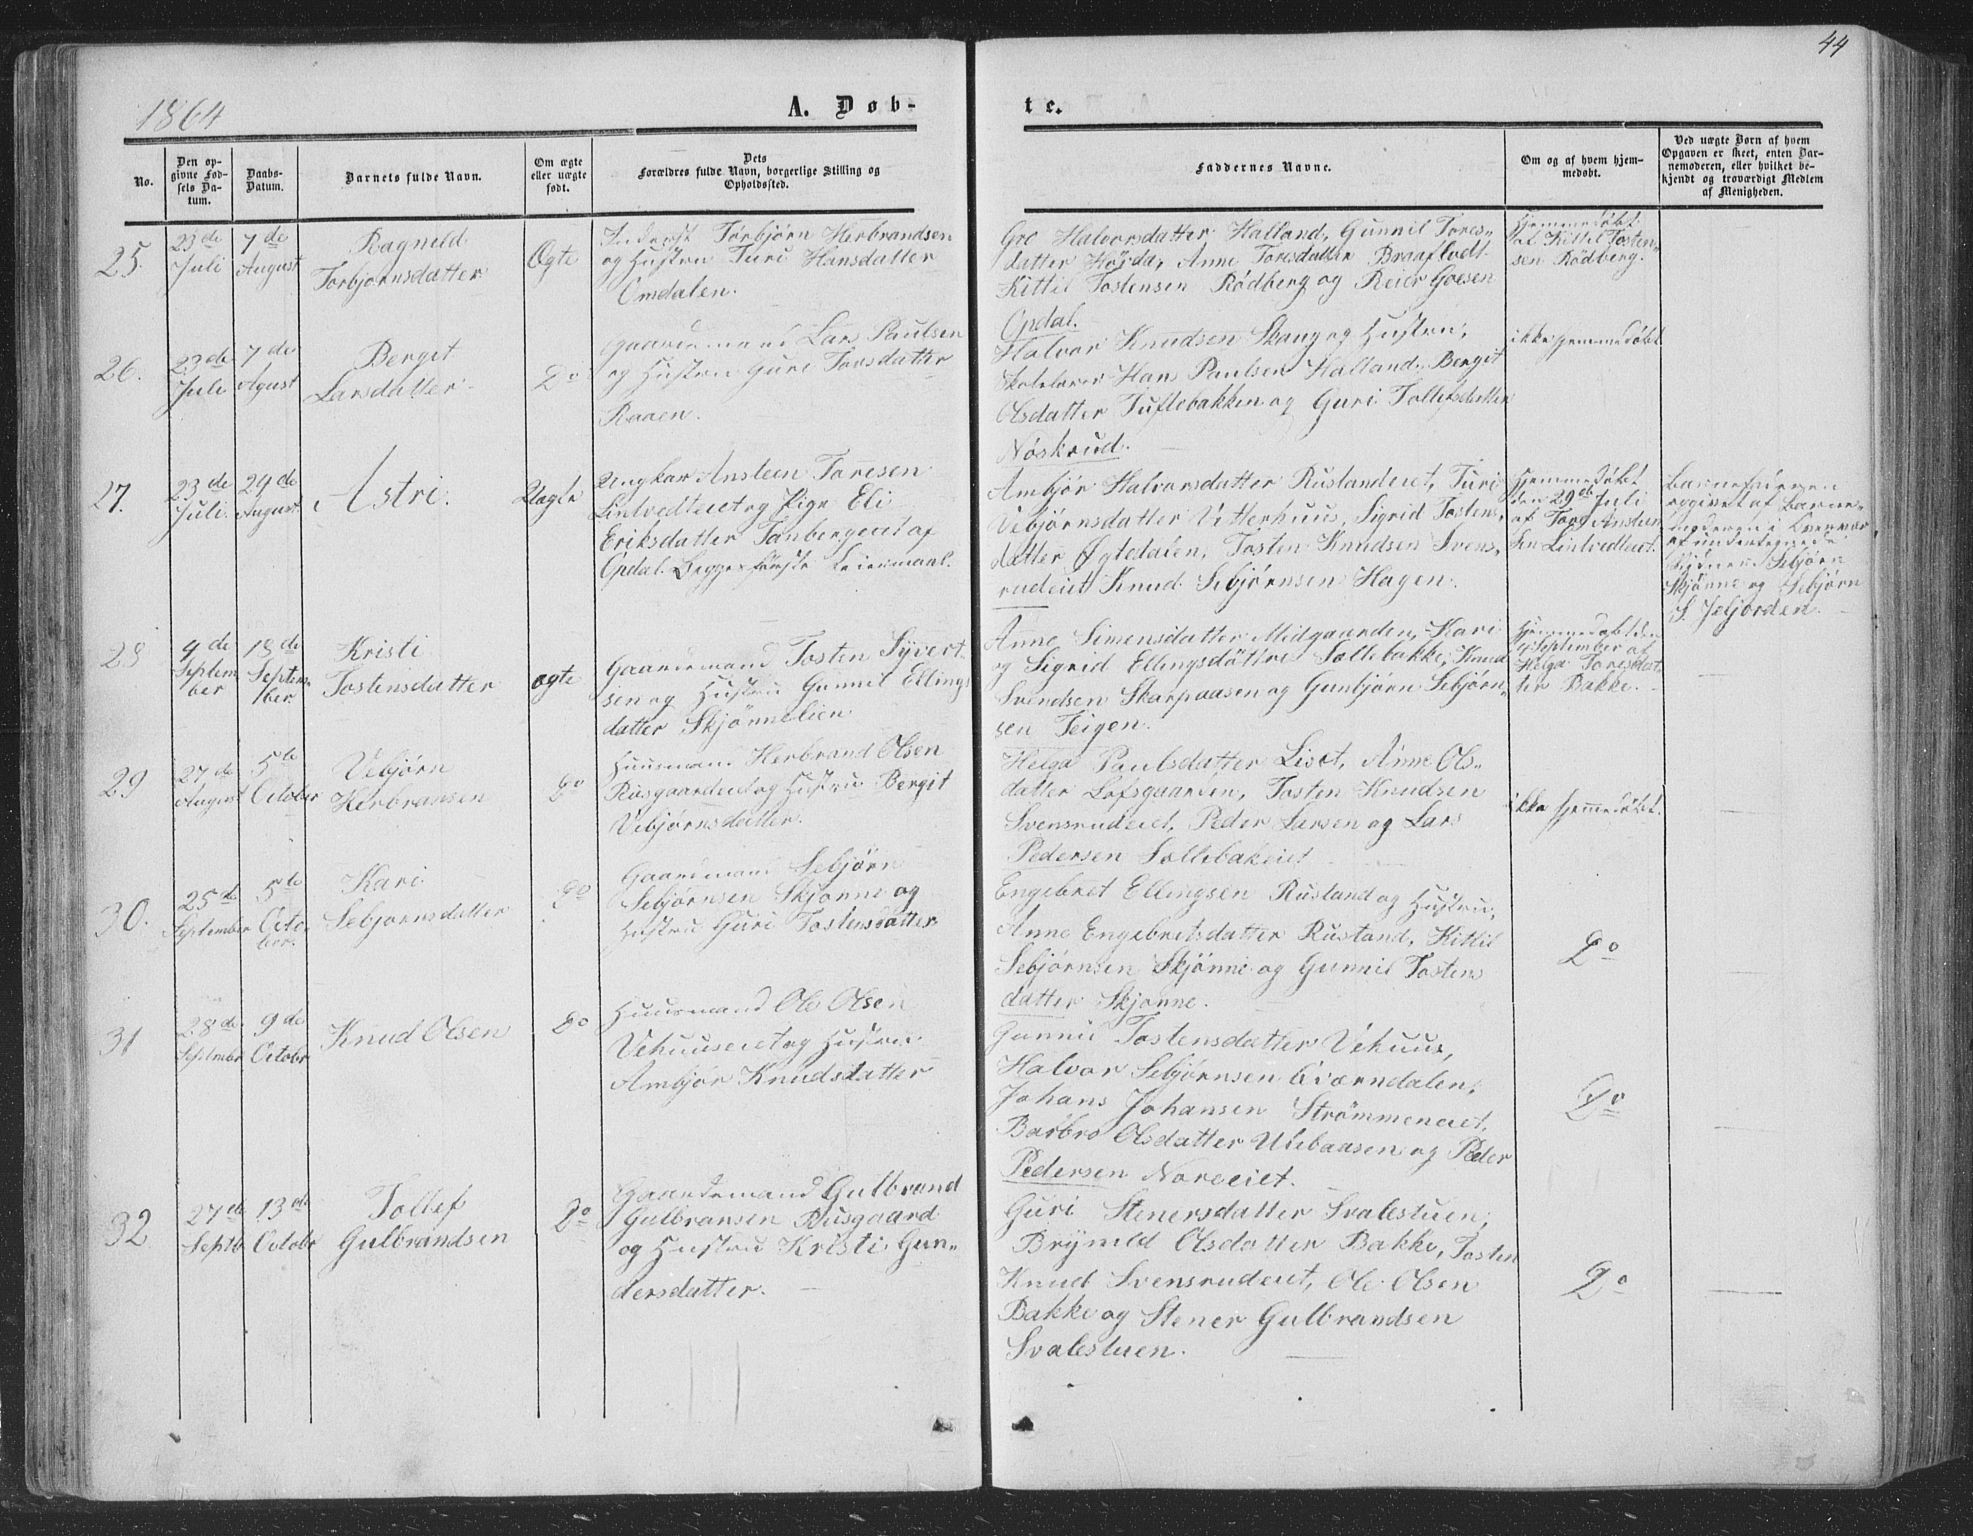 44
1864
A. Døb-
te.
No.
Den op-
givne Fød-
sels Da-
tum.
Daabs-
Datum.
Barnets fulde Navn.
Om ægte
eller uægte
født.
Dets
Forældres fulde Navn, borgerlige Stilling og
Opholdssted.
Faddernes Navne.
Om og af hvem hjem-
medøbt.
Ved uægte Børn af hvem
Opgaven er skeet, enten Bar-
nemoderen, eller hvilket be-
kjendt og troværdigt Medlem
af Menigheden.
25.
23de
Juli
7de
August
Ragnild
Torbjørnsdatter
Ægte
Inderst Torbjørn Herbrandsen
og Hustru Turi Hansdatter
Omdalen.
Gro Halvorsdatter Halland, Gunnil Tores-
datter Höjda, Anne Toresdatter Braaflodt
Kittil Tostensen Rødberg og Reier Goesen
Opdal.
Hjemmedøbt
af Kittil Tosten-
sen Rødberg.
26.
23de
Juli
7de
Agust
Bergit
Larsdatter
Do
Gaardemand Lars Paulsen
og Hustru Guri Torsdatter
Raaen.
Halvor Knudsen Skoug og Hustru,
Skolelærer Hans Paulsen Halland, Bergit
Olsdatter Tuftebakken og Guri Tollefsdatter
Nøskrud.
ikke hjemmedøbt
27.
23de
Juli.
29de
August.
Astri.
Uægte
Ungkar Ansteen Toresen
Lintvedteiet og Pige Eli
Eriksdatter Tanbergeiet af
Opdal. Begges første Leiermaal.
Ambjør Halvorsdatter Rustandeiet, Turi
Vebjørnsdatter Vitterhuus, Sigrid Tostens-
datter Øgtedalen, Tosten Knudsen Svens-
rudeiet Knud Sebjørnsen Hagen.
Hjemmedøbt
den 29de Juli
af Tore Ansteen
sen Lintvedteiet.
Barnefaderen
opgivet af Barne-
moderen i Overvær
af undertegnede
Vidner Sebjørn
Skjønne og Sebjørn
S. Jesjorden.
28
9de
Septem
ber
18de
Septem-
ber.
Kristi
Tostensdatter
ægte
Gaardemand Tosten Syvert-
sen og Hustru Gunnil Ellings
datter Skjønnelien
Anne Simensdatter Midgaarden, Kari
og Sigrid Ellingsdöttre Sollebakke, Knud
Svendsen Skarpaasen og Gunbjørn Sebjørn-
sen Teigen.
Hjemmedøbt den
September af
Helga Toresdat
ter Bakke.
29
27de
August
5te
October
Vebjørn
Herbransen
Do
Huusmand Herbrand Olsen
Rusgaardeiet og Hustru Bergit
Vebjørnsdatter.
Helga Paulsdatter Liset, Anne Ols-
datter Löfsgaarden, Tosten Knudsen
Svensrudeiet, Peder Larsen og Lars
Pedersen Sollebakeiet
ikke hjemmedøbt.
30.
25de
September
5te
Octo-
ber.
Kari
Sebjørnsdatter
Do
Gaardemand Sebjørn
Sebjørnsen Skjønne og
Hustru Guri Tostensdatter
Engebret Ellingsen Rustand og Hustru,
Anne Engebretsdatter Rustand, Kittil
Sebjørnsen Skjönne og Gunnil Tostens
datter Skjønne.
Do
31
28de
Septmber
9de
Octobr
Knud Olsen
Do
Huusmand Ole Olsen
Vehuuseiet og Hustru
Ambjør Knudsdatter
Gunnil Tostensdatter Vehuus,
Halvor Sebjørnsen Qværndalen,
Johans Johansen Strömmeneiet,
Barbro Olsdatter Ulebaasen og Peder
Pedersen Noreeiet.
Do
32
27de
Septb
13de
Octobr
Tollef
Gulbrandsen
Do
Gaardemand Gulbrand
Gulbransen Rusgaard
og Hustru Kristi Gun-
dersdatter.
Guri Stenersdatter Svalestuen,
Brynild Olsdatter Bakke, Tosten
Knud Svensrudeiet, Ole Olsen
Bakke og Stener Gulbrandsen
Svalestuen.
Do